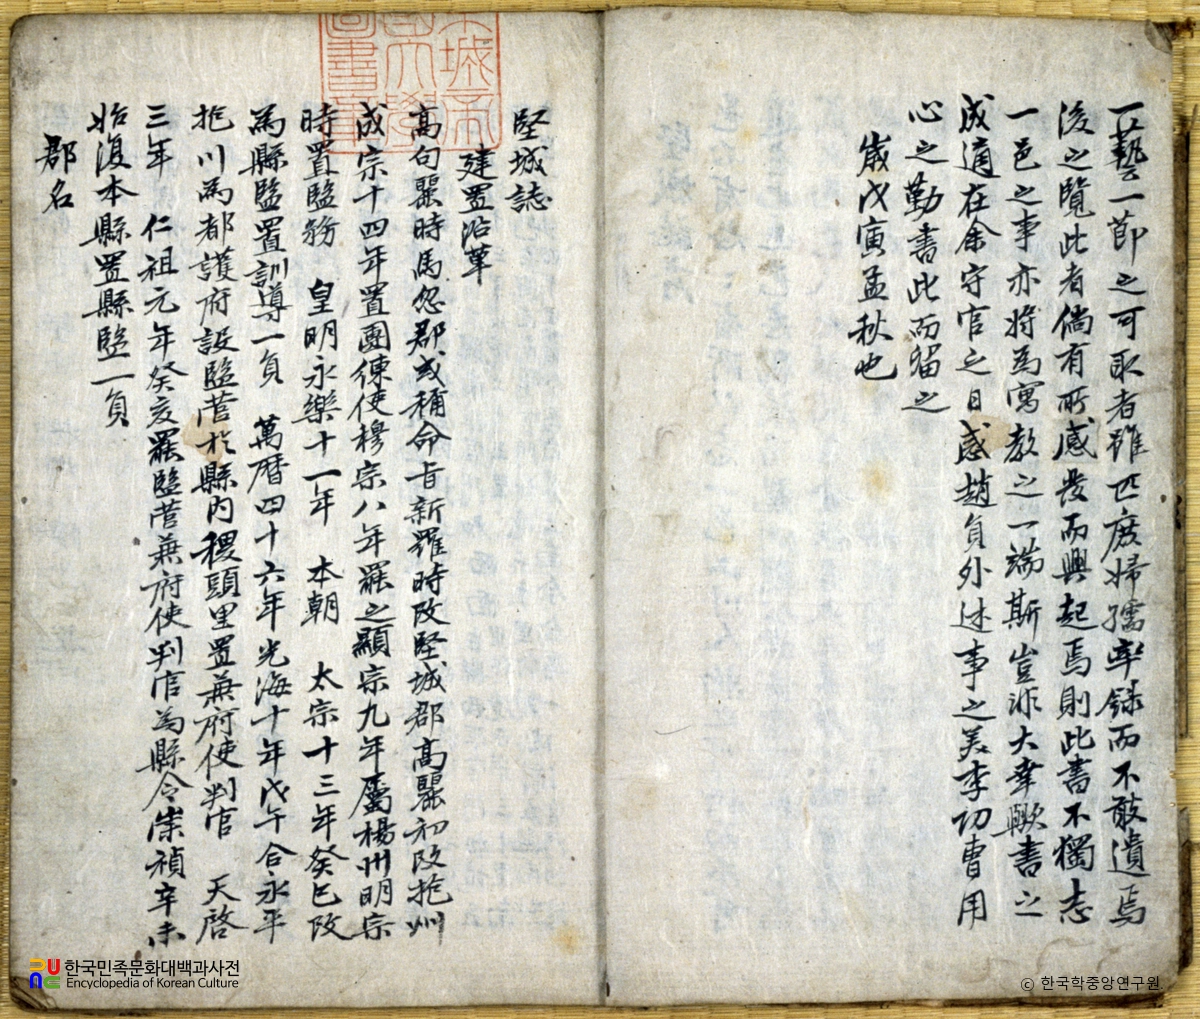 一藝一節之可取者雖匹庶婦孺率錄而不敢遺焉
後之覽此者倘有所感發而興起焉則此書不獨志
一邑之事亦將爲寓敎之一端斯豈非大幸歟書之
成適在余守官之日感趙員外述事之美李功曹用
心之勤書此而留之
歲戊寅孟秋也
堅城誌
建置沿革
高句麗時馬忽郡或稱命旨新羅時改堅城郡高麗初改抱州
成宗十四年置團練使穆宗八年罷之顯宗九年屬楊州明宗
時置監務 皇明永樂十一年 本朝 太宗十三年癸巳改
爲縣監置訓導一員 萬曆四十六年光海十年戊午合永平
抱川爲都護府設監營於縣內稷頭里置兼府使判官 天啓
三年 仁祖元年癸亥罷監營兼府使判官爲縣令崇禎辛未
始復本縣置縣監一員
郡名
한국민족문화대백과사전
Encyclopedia of Korean Culture
ⓒ 한국학중앙연구원